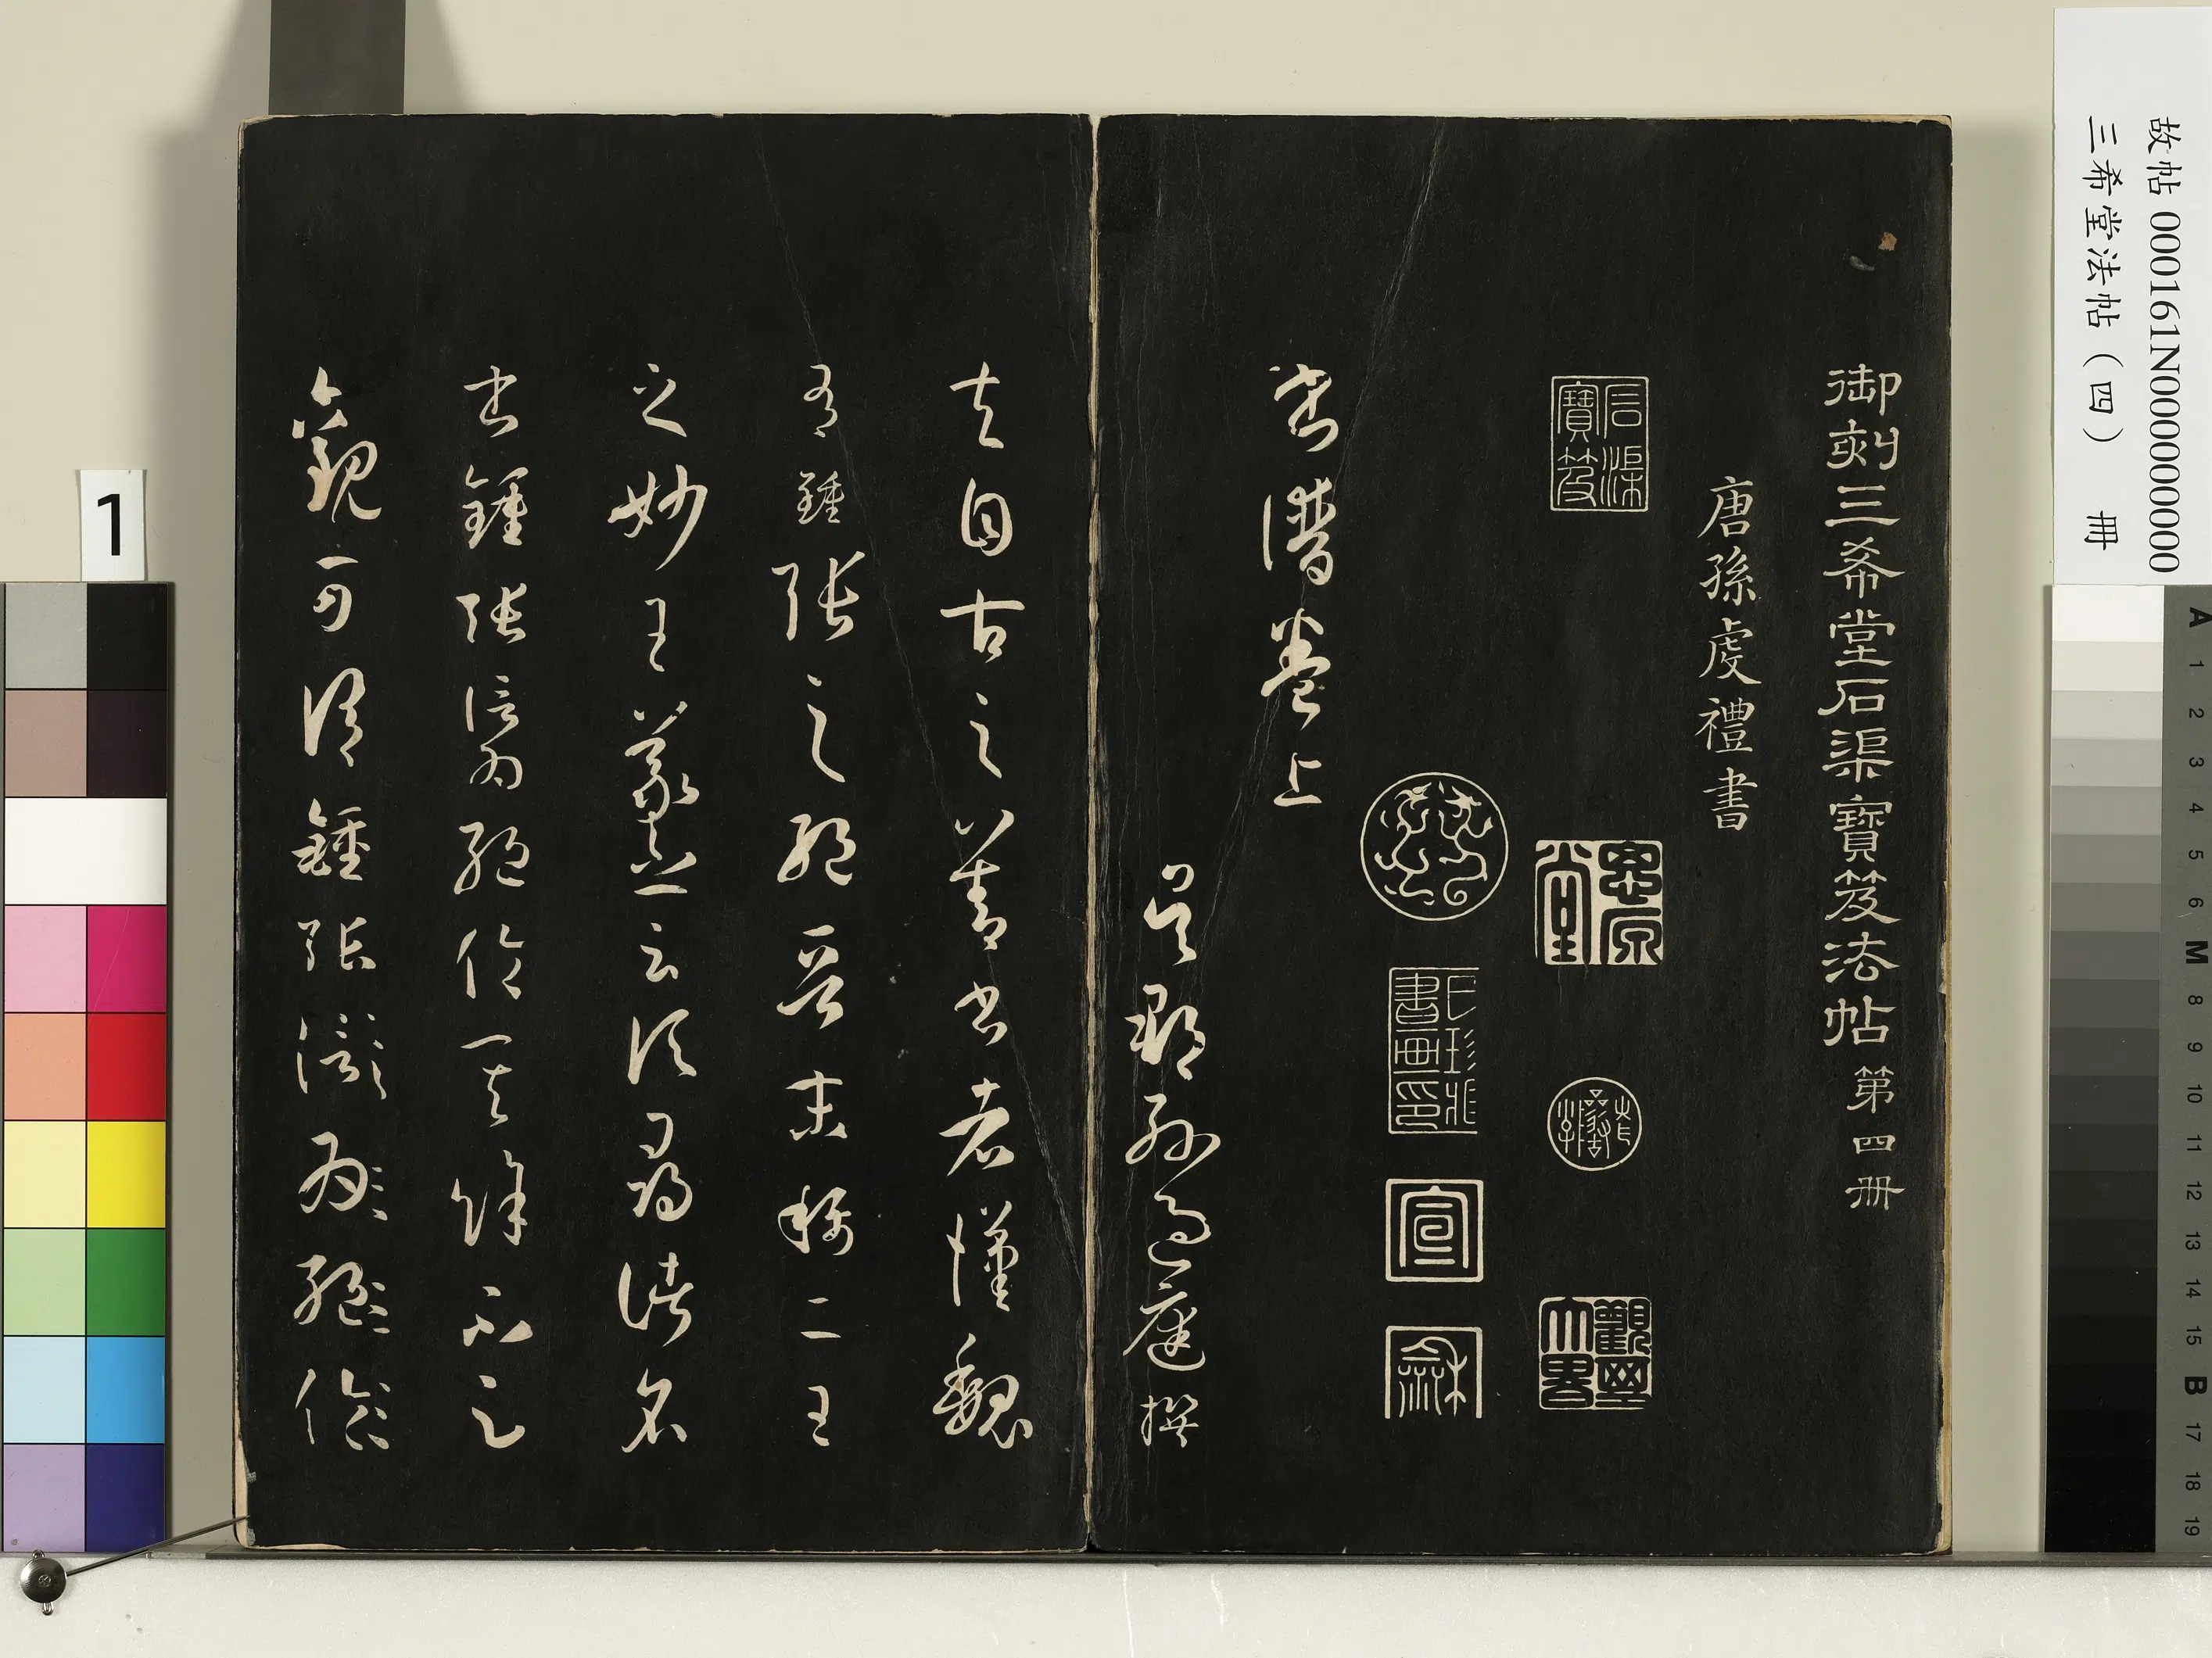 故帖 000161N000000000
三希堂法帖（四） 冊
御刻三希堂石渠寶笈法帖 第四冊
唐孫虔禮書
石渠寶笈
書譜卷上
吳郡孫過庭撰
夫自古之善書者漢魏
有鍾張之絕晉末稱二王
之妙王羲之云頃尋諸名
書鍾張信為絕倫其餘不足
觀可謂鍾張云沒
1
A 1 2 3 4 5 6 M 8 9 10 11 12 13 14 15 B 17 18 19